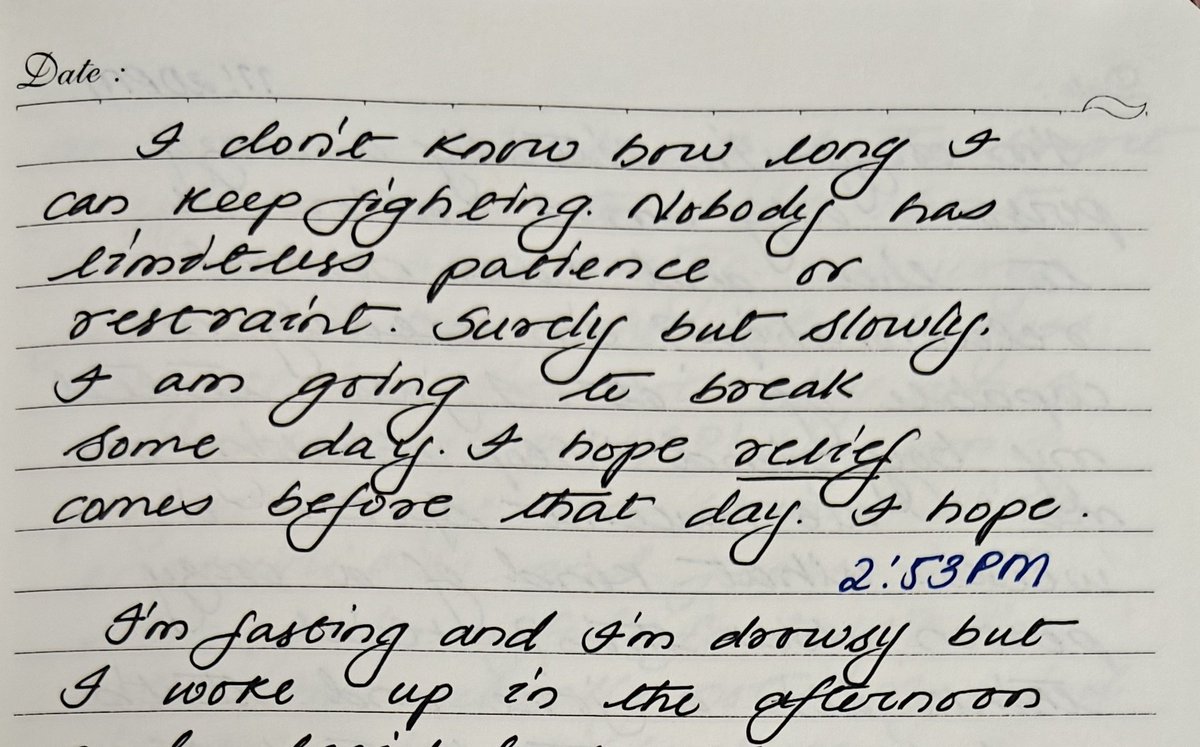 Date :
I don't know how long I
can keep fighting. Nobody has
limitless patience or
restraint. Surely but slowly.
I am going to break
some day. I hope relief
comes before that day. I hope.
2:53PM
I'm fasting and I'm drowsy but
I woke up in the afternoon